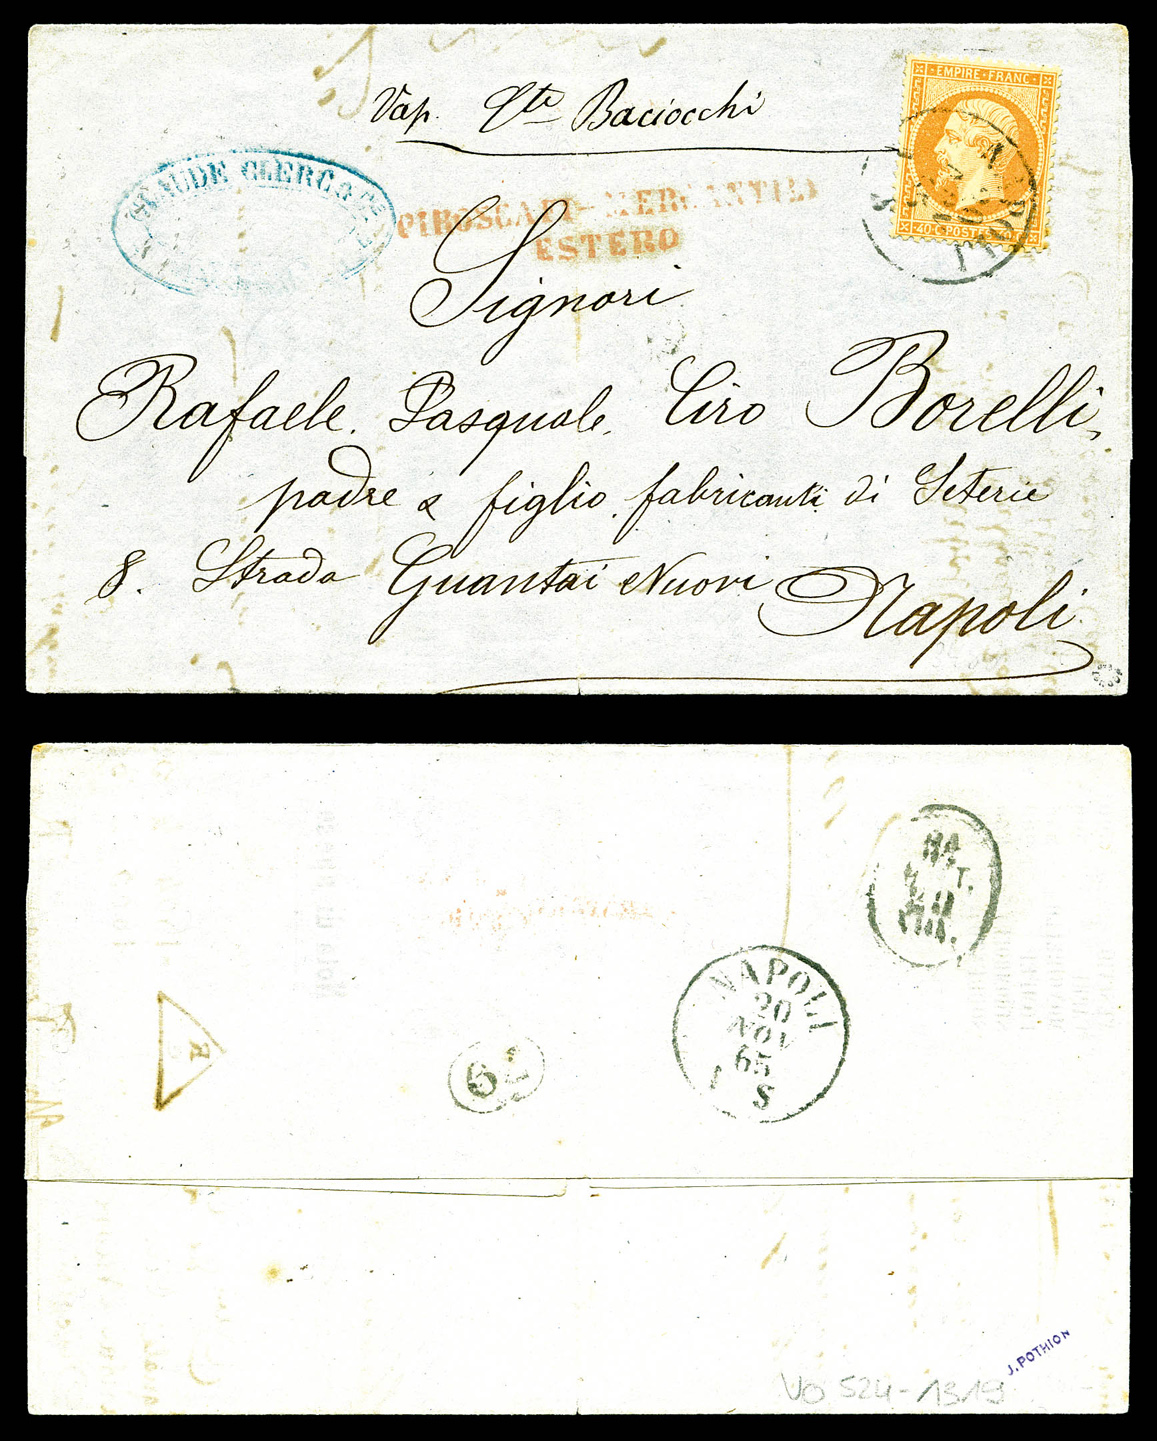 Vap. Cte Baciocchi
EMPIRE FRANC
40 C POSTES 40
NAPOLI
CLAUDE CLERC &
PIROSCAFI-MERCANTILI
ESTERO
Signori
Rafaele, Pasquale, Ciro Borelli,
padre & figlio, fabricanti di Seterie
8. Strada Guantai Nuovi
Napoli
NAPOLI
20
NOV
65
1 S
62
J. POTHION
VO 524-1319